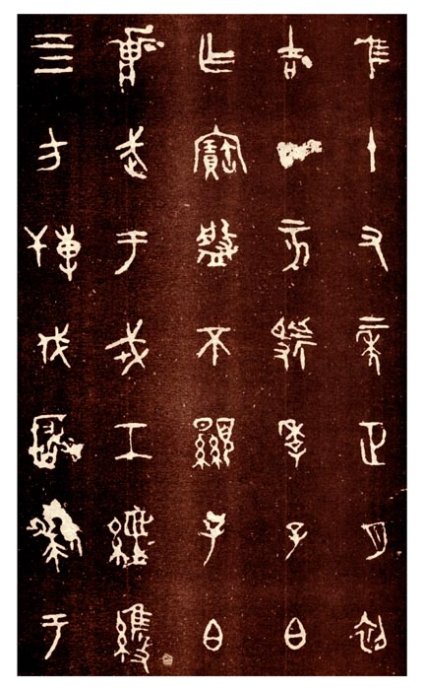 隹十又二年正月初
吉丁亥虢季子白
乍寶盤不顯子白
壯武于戎工經維
四方搏伐玁狁于